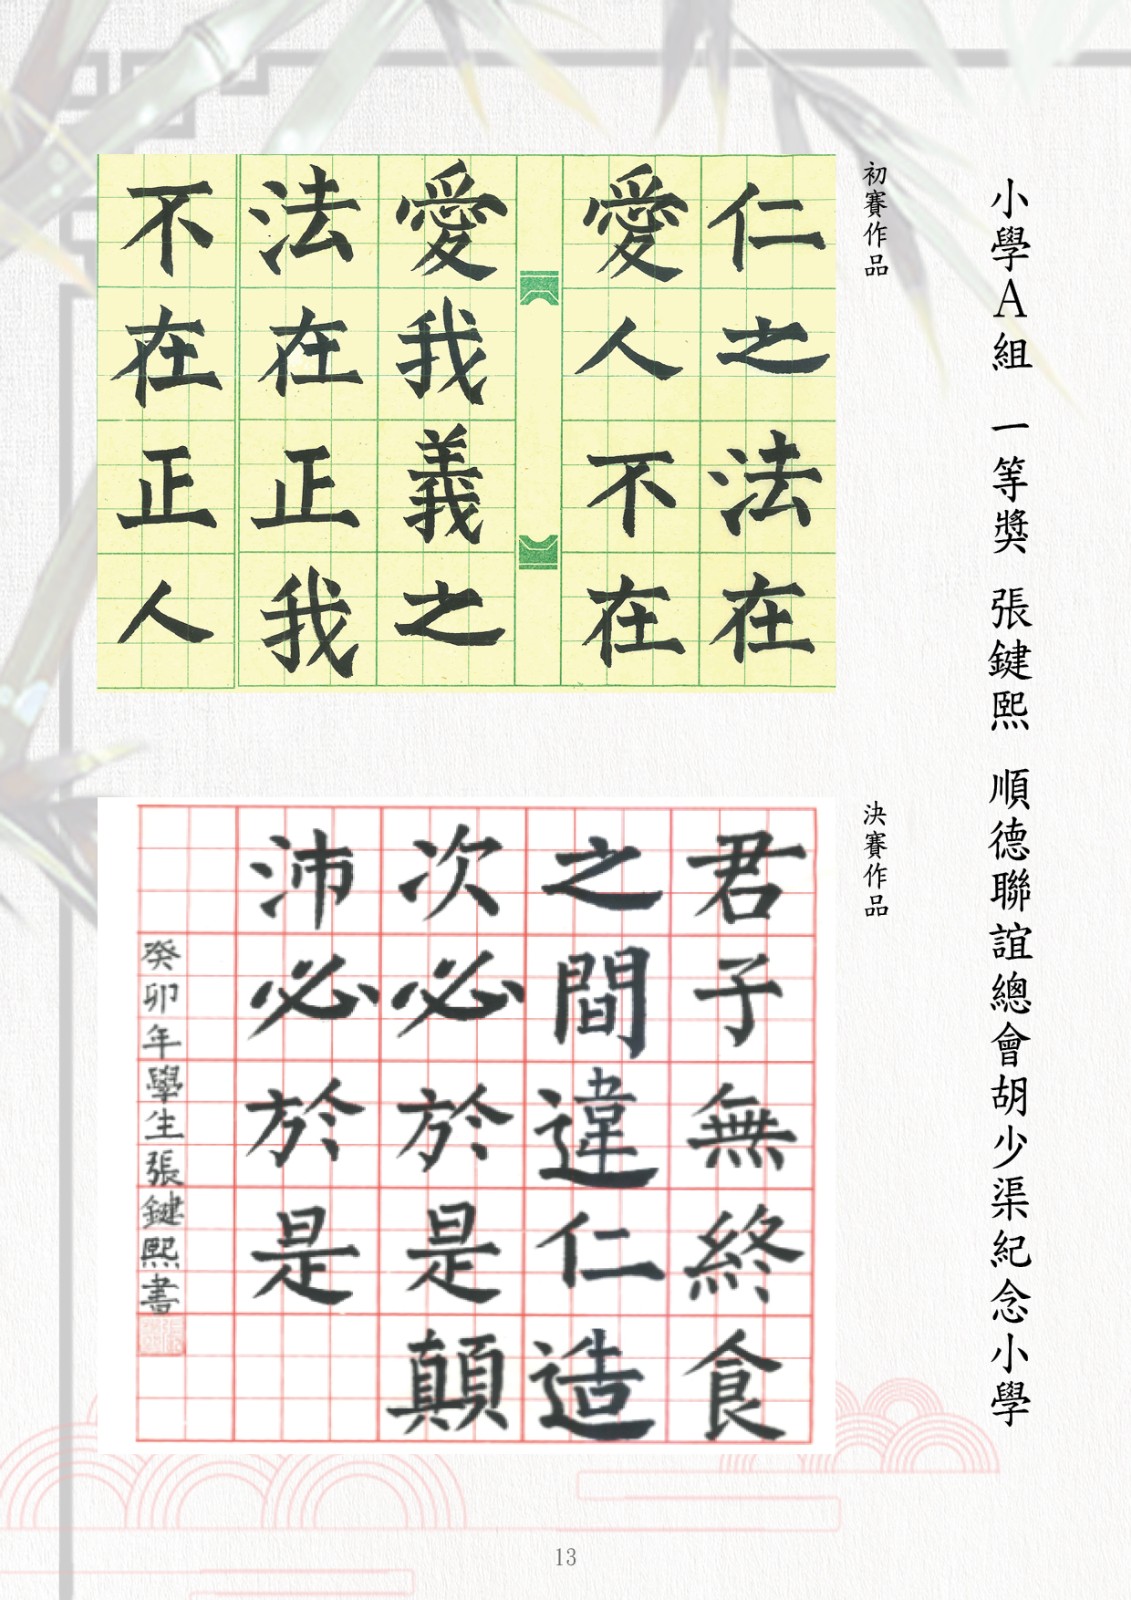 小學A組 一等獎 張鍵熙 順德聯誼總會胡少渠紀念小學
初賽作品
仁之法在
愛人不在
愛我義之
法在正我
不在正人
決賽作品
君子無終食
之間違仁造
次必於是顛
沛必於是
癸卯年學生張鍵熙書
13